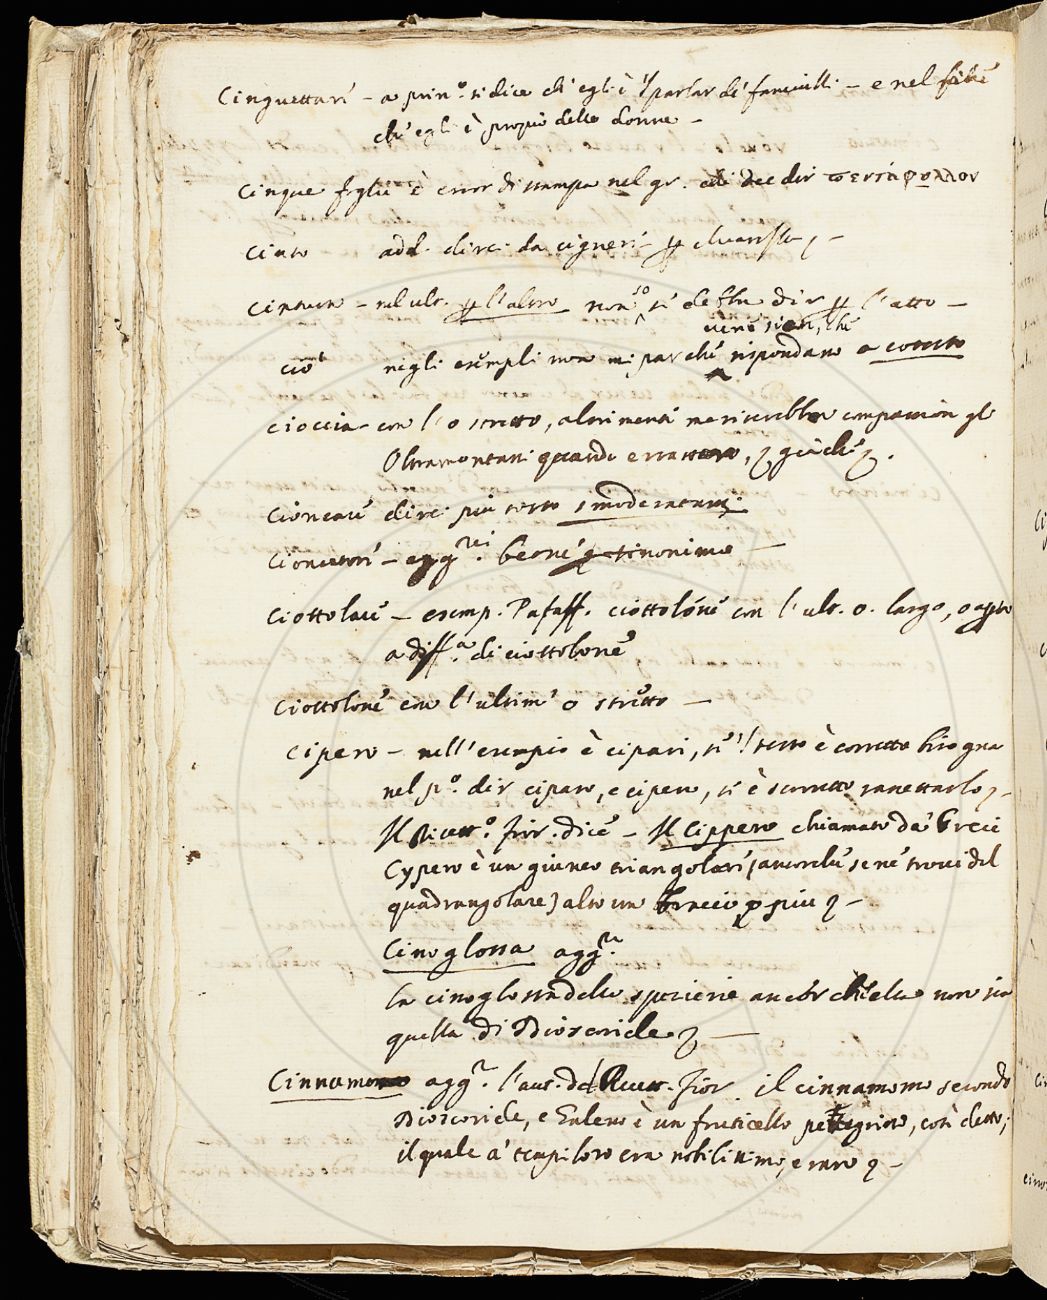 Cinguettare – a prin.º si dice ch'egli è 'l parlar de' fanciulli – e nel fine
ch'egli è proprio delle donne –
Cinque foglie è error di stampa nel gr. dee dir πεντάφυλλον
Cinto add. direi da cignere –
Cintura – nel ult. l'altro non si debba dir l'atto –
viene sian, che
ciò negli esempli non mi par che rispondano a cotesto
cioccia – con l'o stretto, altrimenti meriterebber compassion gl'
Oltramontani quando errassero, giacchè
Cioncare direi più tosto smoderatam.
Cioncatore – aggrei. beone sinonimo –
Ciottolare – esemp. Pataff. ciottolóne con l'ult. o. largo, o aperto
a diff.ª di ciottolone
Ciottolone con l'ultimo o stretto –
Cipero – nell'esempio è cipari, se 'l testo è corretto bisogna
nel p.º dir ciparo, e cipero, si è scorretto rassettarlo –
Il Ricett.º fior. dice – Il Cippero chiamato da' Greci
Cypero è un giunco triangolare (ancorchè se ne trovi del
quadrangolare) alto un braccio o più –
Cinoglossa agg.re
la cinoglossa delle spezierie ancor ch'ella non sia
quella di Dioscoride –
Cinnamomo agg.r l'aut. del Ricett. Fior. il cinnamomo secondo
Dioscoride, e Galeno è un fruticello peregrino, così detto,
il quale a' tempi loro era nobilissimo, e raro –